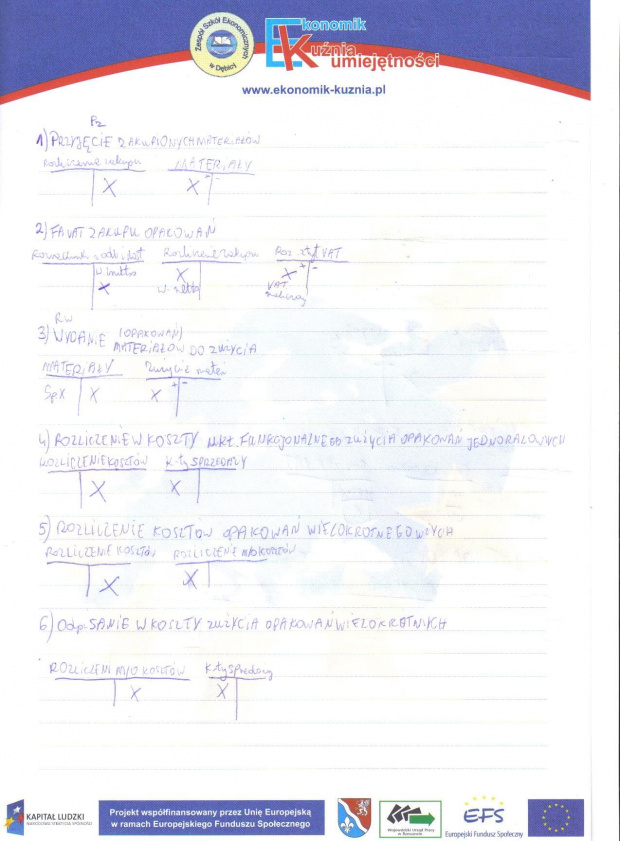 Zespół Szkół Ekonomicznych
w Dębicy
Ekonomik
Kuźnia
umiejętności
www.ekonomik-kuznia.pl
Pz
1) PRZYJĘCIE ZAKUPIONYCH MATERIAŁÓW
Rozliczenie zakupu MATERIAŁY
X X
2) FA VAT ZAKUPU OPAKOWAŃ
Rozliczenie zakupu Roz. VAT
+ -
w. brutto X X
X w. netto VAT
RW
3) WYDANIE (OPAKOWAŃ)
MATERIAŁÓW DO ZUŻYCIA
MATERIAŁY Zużycie mater
+ -
Sp.X X X
4) ROZLICZENIE W KOSZTY FUNKCJONALNEGO ZUŻYCIA OPAKOWAŃ JEDNORAZOWYCH
ROZLICZENIE KOSZTÓW K-ty SPRZEDAŻY
X X
5) ROZLICZENIE KOSZTÓW OPAKOWAŃ
ROZLICZENIE KOSZTÓW ROZLICZENIE M/O KOSZTÓW
X X
6) OdpiSANIE W KOSZTY ZUŻYCIA OPAKOWAŃ WIELOKROTNYCH
ROZLICZENI M/O KOSZTÓW K-ty Sprzedaży
X X
KAPITAŁ LUDZKI
NARODOWA STRATEGIA SPÓJNOŚCI
Projekt współfinansowany przez Unię Europejską
w ramach Europejskiego Funduszu Społecznego
Wojewódzki Urząd Pracy
w Rzeszowie
EFS
Europejski Fundusz Społeczny